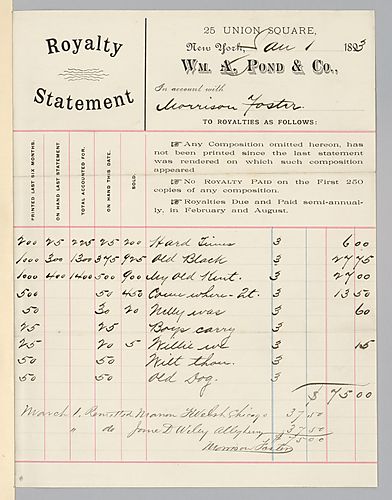 Royalty
Statement
25 UNION SQUARE,
New York, Jan 1 1893
WM. A. POND & CO.,
In account with
Morrison Foster
TO ROYALTIES AS FOLLOWS:
☞ Any Composition omitted hereon, has
not been printed since the last statement
was rendered on which such composition
appeared
☞ NO ROYALTY PAID on the First 250
copies of any composition.
☞ Royalties Due and Paid semi-annual-
ly, in February and August.
PRINTED LAST SIX MONTHS.
ON HAND LAST STATEMENT
TOTAL ACCOUNTED FOR.
ON HAND THIS DATE.
SOLD.
200 25 225 25 200 Hard Times 3 6 00
1000 300 1300 375 925 Old Black 3 27 75
1000 400 1400 500 900 My Old Kent. 3 27 00
500 50 450 Coon where- 3 13 50
50 30 20 Nelly was 3 60
25 25 Boys carry 3
25 20 5 Willie we 3 15
50 50 Wilt thou 3
50 50 Old Dog. 3
$ 75 00
March 1. Remitted Marion Welsh Chicago 37 50
" do Jane D Wiley Allegheny 37 50
$ 75 00
Morrison Foster